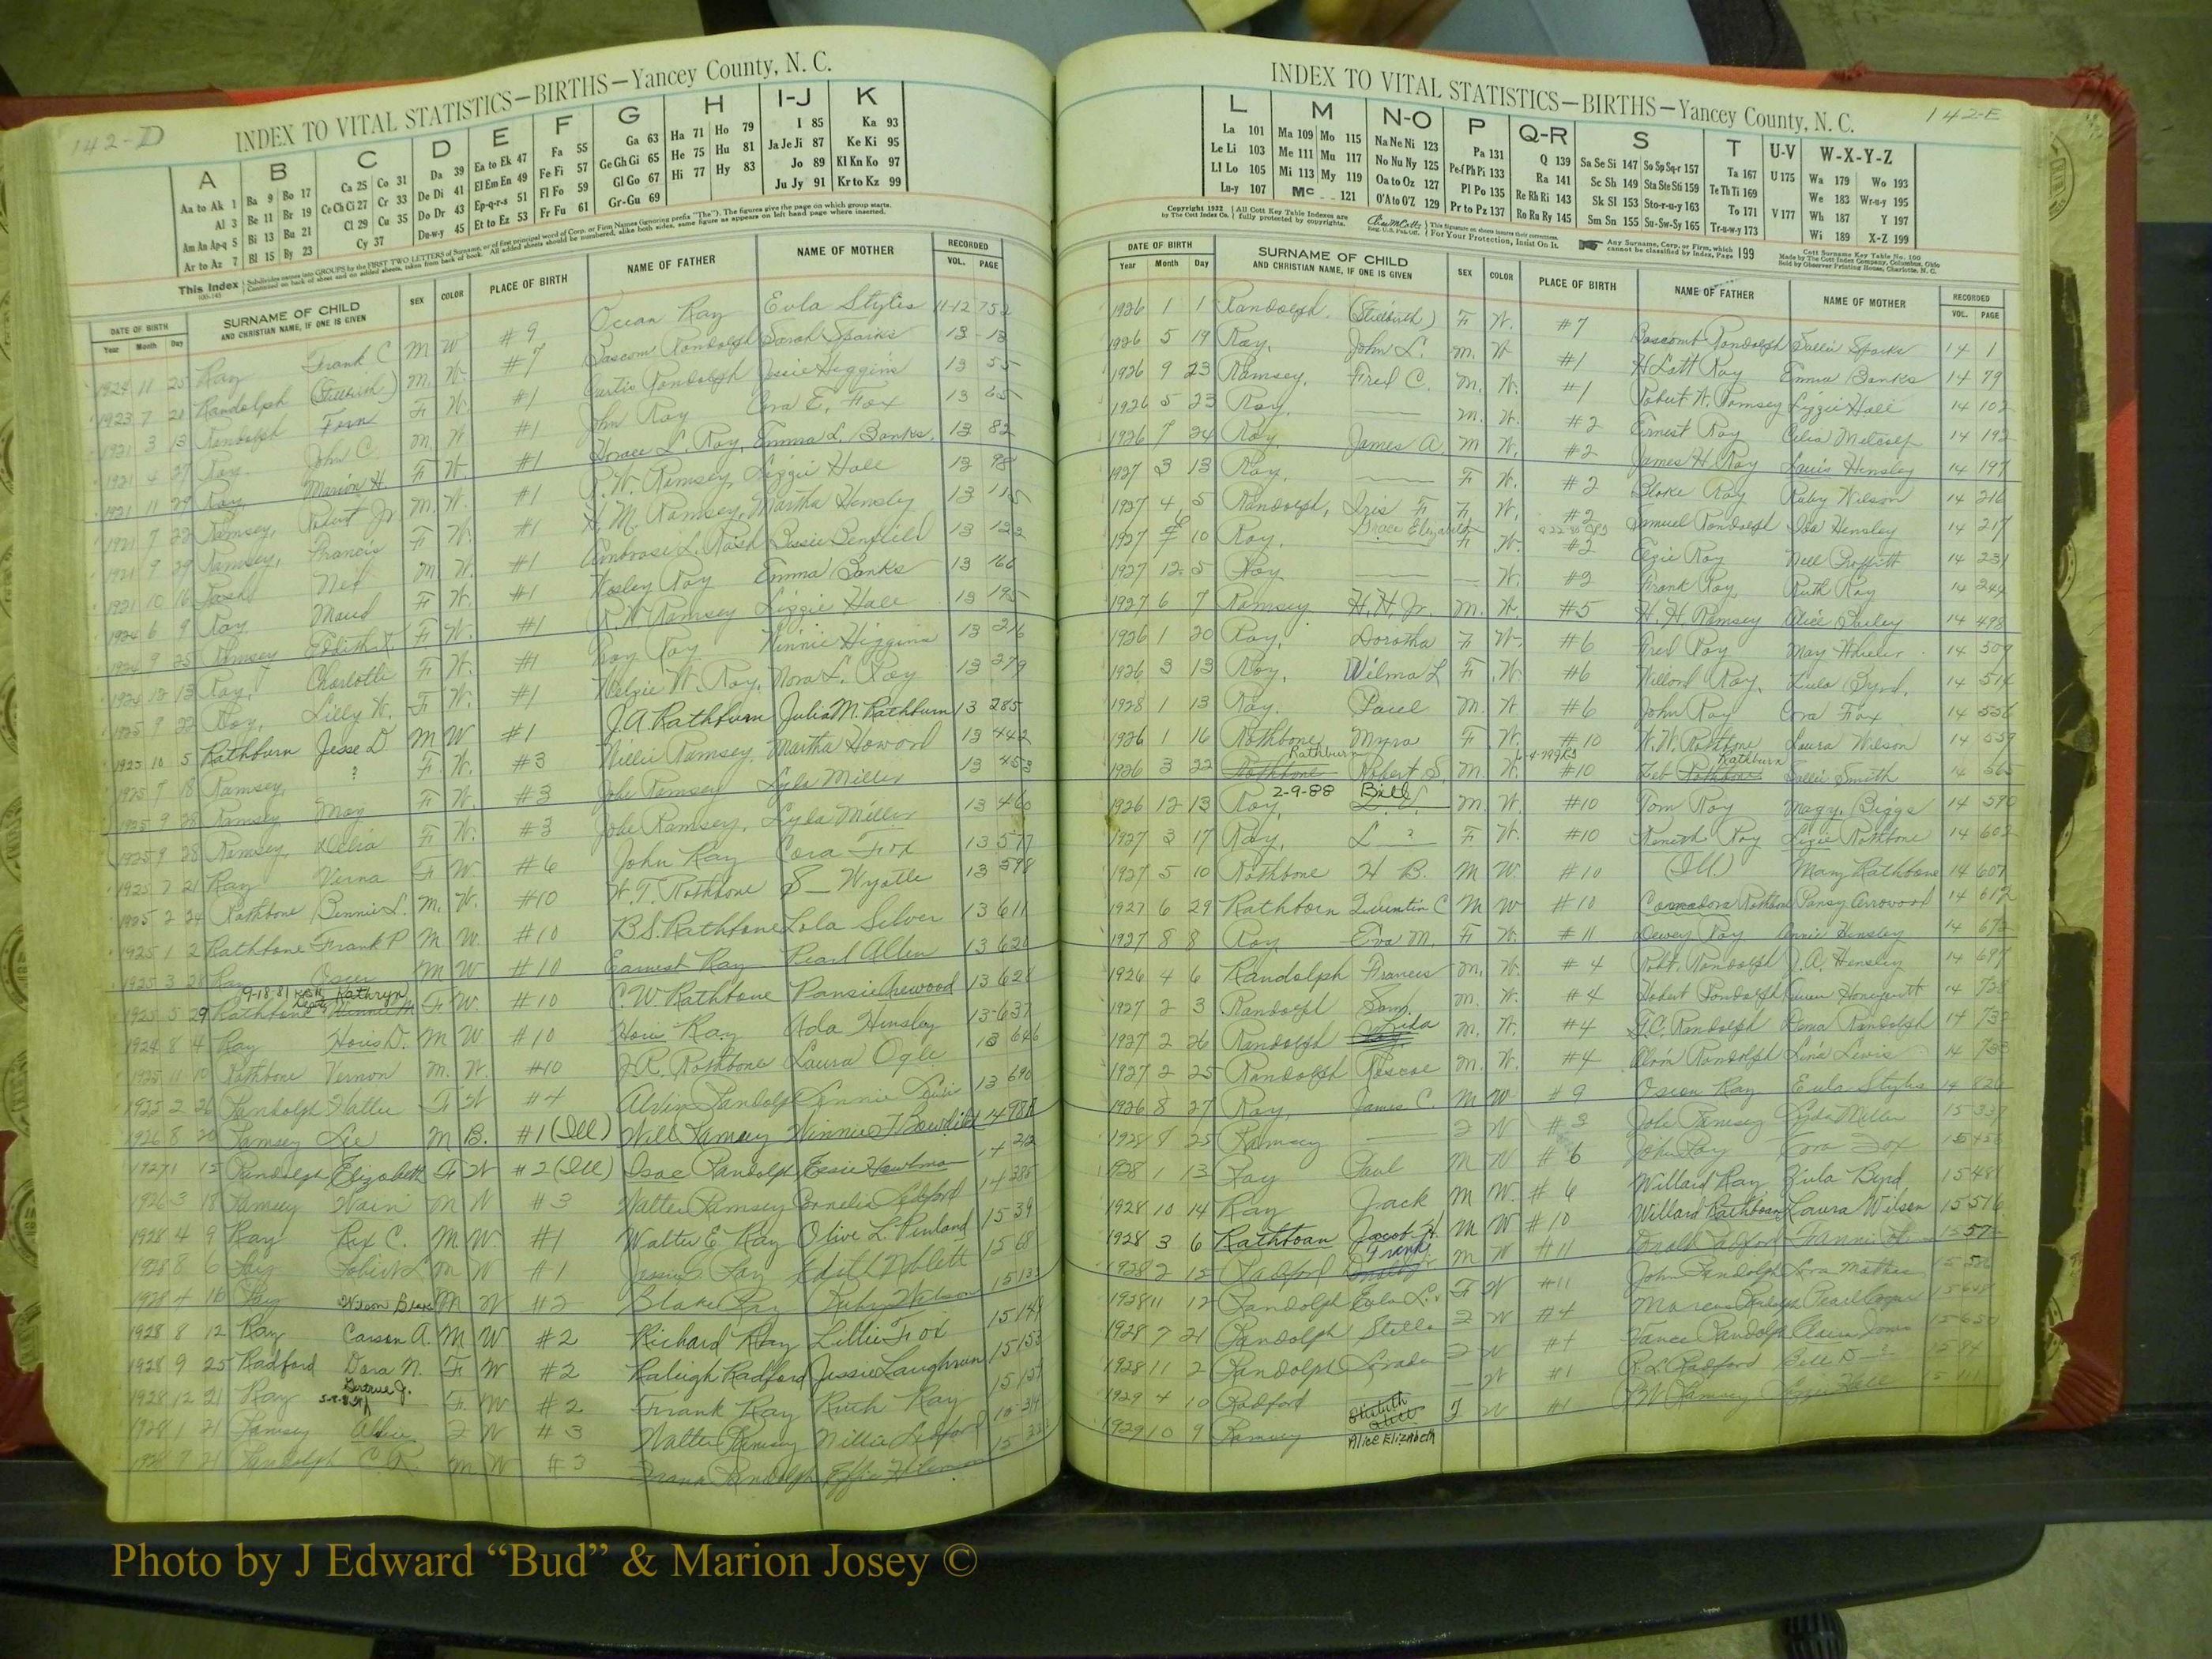 142-D
INDEX TO VITAL STATISTICS—BIRTHS—Yancey County, N. C.
A B C D E F G H I-J K
Aa to Ak 1 Ba 9 Bo 17 Ca 25 Co 31 Da 39 Ea to Ek 47 Fa 55 Ga 63 Ha 71 Ho 79 I 85 Ka 93
Al 3 Be 11 Br 19 Ce Ch Ci 27 Cr 33 De Di 41 El Em En 49 Fe Fi 57 Ge Gh Gi 65 He 75 Hu 81 Ja Je Ji 87 Ke Ki 95
Am An Ap-q 5 Bi 13 Bu 21 Cl 29 Cu 35 Do Dr 43 Ep-q-r-s 51 Fl Fo 59 Gl Go 67 Hi 77 Hy 83 Jo 89 Kl Kn Ko 97
Ar to Az 7 Bl 15 By 23 Cy 37 Du-w-y 45 Et to Ez 53 Fr Fu 61 Gr-Gu 69 Ju Jy 91 Kr to Kz 99
This Index
DATE OF BIRTH SURNAME OF CHILD AND CHRISTIAN NAME, IF ONE IS GIVEN SEX COLOR PLACE OF BIRTH NAME OF FATHER NAME OF MOTHER RECORDED
Year Month Day VOL. PAGE
1924 11 25 Ray Frank C M W #9 Ocean Ray Eula Styles 11-12 752
1923 7 20 Randolph (Stillbirth) M. W. #7 Bascom Randolph Sarah Sparks 13 13
1921 3 13 Randolph Fern F W. #1 Curtis Randolph Jessie Higgins 13 55
1921 4 27 Ray John C. M. W #1 John Ray Cora E. Fox 13 65
1921 11 29 Ray, Marion H. F W. #1 Horace L. Ray, Emma L. Banks. 13 82
1921 7 22 Ramsey, Robert Jr M. W. #1 R. W. Ramsey, Lizzie Hall 13 98
1921 9 29 Ramsey, Francis F W. #1 H. M. Ramsey, Martha Hensley 13 115
1921 10 16 M. W. #1 Bessie Benfield 13 123
1924 6 9 Ray Maud F W. #1 Wesley Ray Emma Banks 13 166
1924 9 25 Ramsey Edith F. W. #1 R. W. Ramsey Lizzie Hall 13 195
1924 12 13 Ray, Charlotte F W. #1 Roy Ray Winnie Higgins 13 216
1925 9 22 Ray, Lilly W. F W. #1 Ray, Nora L. Ray 13 279
1925 10 5 Rathburn Jesse D M W #1 J. A. Rathburn Julia M. Rathburn 13 285
1925 7 18 Ramsey, ? F. W. #3 Willie Ramsey. Martha Howard 13 442
1925 9 28 Ramsey May F W. #3 Jobe Ramsey Lyda Miller 13 453
1925 9 28 Ramsey, Delia F W. #3 Jobe Ramsey, Lyda Miller 13 460
1925 7 21 Ray Verna F W. #6 John Ray Cora Fox 13 577
1925 2 24 Rathbone Bennie L. M. W. #10 W. T. Rathbone S— Wyatte 13 598
1925 1 2 Rathbone Frank P M W. #10 B. S. Rathbone Lola Silver 13 611
1925 3 28 Ray Oscar M W #10 Earnest Ray Pearl Allen 13 620
9-18-81 Kathryn
1925 5 29 Rathbone Winnie M F W. #10 C. W Rathbone Pansie Arewood 13 628
1924 8 4 Ray Horis D. M W #10 Ray Ada Hensley 13 637
1925 11 10 Rathbone Vernon M. W. #10 J. R. Rathbone Laura Ogle 13 646
1925 2 26 Randolph Hattie F W #4 Alvin Randolph 13 690
1926 8 20 Ramsey Lee M B. #1 (Ill) Will Ramsey
1927 1 12 Randolph Elizabeth F W #2 (Ill) Isac Randolph Essie
1926 3 18 Ramsey M W #3 Walter Ramsey Ledford 14 285
1928 4 9 Ray Rex C. M. W. #1 Walter E. Ray Olive L. Penland 15 39
1928 8 6 Ray Robert L M W #1 Ray Noblett 15 68
1928 4 16 Ray M W #2 Blake Ray Ruby Wilson
1928 8 12 Ray Carson A. M W #2 Richard Ray Lillie Fox 15 149
1928 9 25 Radford Dora N. F W #2 Raleigh Radford Jessie Laughrun 15 153
1928 12 21 Ray Gertrue J. F. W #2 Frank Ray Ruth Ray 15 157
1928 1 21 Ramsey F W #3 Walter Ramsey Ledford
1928 7 21 Randolph C. R. M W #3 Frank Randolph Effie
142-E
INDEX TO VITAL STATISTICS—BIRTHS—Yancey County, N. C.
L M N-O P Q-R S T U-V W-X-Y-Z
La 101 Ma 109 Mo 115 Na Ne Ni 123 Pa 131 Q 139 Sa Se Si 147 So Sp Sq-r 157 Ta 167 U 175 Wa 179 Wo 193
Le Li 103 Me 111 Mu 117 No Nu Ny 125 Pe-f Ph Pi 133 Ra 141 Sc Sh 149 Sta Ste Sti 159 Te Th Ti 169 We 183 Wr-u-y 195
Ll Lo 105 Mi 113 My 119 Oa to Oz 127 Pl Po 135 Re Rh Ri 143 Sk Sl 153 Sto-r-u-y 163 To 171 V 177 Wh 187 Y 197
Lu-y 107 Mc 121 O'A to O'Z 129 Pr to Pz 137 Ro Ru Ry 145 Sm Sn 155 Su-Sw-Sy 165 Tr-u-w-y 173 Wi 189 X-Z 199
Copyright 1932 by The Cott Index Co. All Cott Key Table Indexes are fully protected by copyrights. This signature on sheets insures their correctness. For Your Protection, Insist On It. Any Surname, Corp. or Firm, which cannot be classified by Index, Page 199 Cott Surname Key Table No. 100 Made by The Cott Index Company, Columbus, Ohio Sold by Observer Printing House, Charlotte, N. C.
DATE OF BIRTH SURNAME OF CHILD AND CHRISTIAN NAME, IF ONE IS GIVEN SEX COLOR PLACE OF BIRTH NAME OF FATHER NAME OF MOTHER RECORDED
Year Month Day VOL. PAGE
1926 1 1 Randolph. (Stillbirth) F W. #7 Bascomb Randolph Sallie Sparks 14 1
1926 5 19 Ray, John L. M. W #1 H Latt Ray Emma Banks 14 79
1926 9 23 Ramsey, Fred C. M. W. #1 Robert W. Ramsey Lizzie Hall 14 102
1926 5 23 Ray, — M. W. #2 Ernest Ray Celia Metcalf 14 192
1926 7 24 Ray, James A. M W. #2 James H. Ray Lauis Hensley 14 197
1927 3 13 Ray, — F W. #2 Blake Ray Ruby Wilson 14 216
1927 4 5 Randolph, Iris F F W. #2 Samuel Randolph Ida Hensley 14 217
1927 10 Ray, Grace Elizabeth F W. #2 Ray Nell Proffitt 14 231
1927 12 5 Ray — — W. #2 Frank Ray, Ruth Ray 14 244
1927 6 7 Ramsey H. H. Jr. M. W. #5 H. H. Ramsey Alice Bailey 14 498
1926 1 20 Ray, Dorotha F W. #6 Fred Ray May Wheeler 14 509
1926 3 13 Ray, Wilma L F W. #6 Willard Ray, Lula Byrd. 14 514
1928 1 13 Ray. Paul M. W #6 John Ray Cora Fox 14 536
1926 1 16 Rathbone Myra F W. #10 W. W. Rathbone Laura Wilson 14 559
Rathburn Rathburn
1926 3 22 Rathbone Robert S. M. W. #10 Zeb Rathbone Sallie Smith 14 565
2-9-88 Bill
1926 12 13 Ray, M. W. #10 Tom Ray Biggs 14 590
1927 3 17 Ray, L ? F W. #10 Keneth Ray Lizzie Rathbone 14 602
1927 5 10 Rathbone H B. M W. #10 (Ill.) Mary Rathbone 14 607
1927 6 29 Rathborn Quentin C M W #10 Pansy Arrowood 14 612
1927 8 8 Ray Eva M. F W. #11 Dewey Ray Annie Hensley 14 672
1926 4 6 Randolph Frances M. W. #4 Robt. Randolph J. A. Hensley 14 697
1927 2 3 Randolph Sam. M. W. #4 Hobert Randolph Honeycutt 14 728
1927 2 26 Randolph M. W. #4 Randolph Randolph 14 732
1927 2 25 Randolph Roscoe M. W. #4 Randolph Lewis 14 733
1926 8 27 Ray, James C. M W #9 Ray Eula Styles 14 820
1928 8 25 Ramsey — F W #3 Jobe Ramsey Lyda Miller 15 337
1928 1 13 Ray Paul M W #6 John Ray Cora Fox 15 458
1928 10 14 Ray Jack M W. #6 Willard Ray Zula Byrd 15 481
1928 3 6 Rathboan Jacob H. M W #10 Willard Rathboan Laura Wilson 15 576
1928 2 15 Radford Frank M W #11
1928 11 12 Randolph Eula L. F W #11 John Randolph
1928 7 21 Randolph Stella F W #4 Randolph Pearl
1928 11 2 Randolph F W #4 Vance Randolph Jones
1929 4 10 Radford — W #1 R. L. Radford Bell D— ?
1929 10 9 Ramsey Alice Elizabeth F W #1 R W Ramsey Lizzie Hall
Photo by J Edward “Bud” & Marion Josey ©